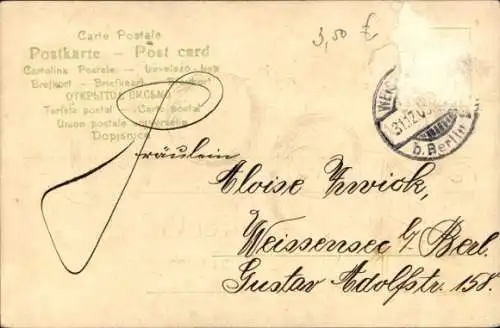 Carte Postale
Postkarte – Post card
Cartolina Postale – Levelező-Lap
Brefkort – Briefkaart –
ОТКРЫТОЕ ПИСЬМО
Tarjeta postal – Carte postal
Union postale universelle
Dopisnice
3,50 £
31.12.05
b. Berlin
Fräulein
Aloise Zwick,
Weissensee b/ Berl.
Gustav Adolfstr. 158.